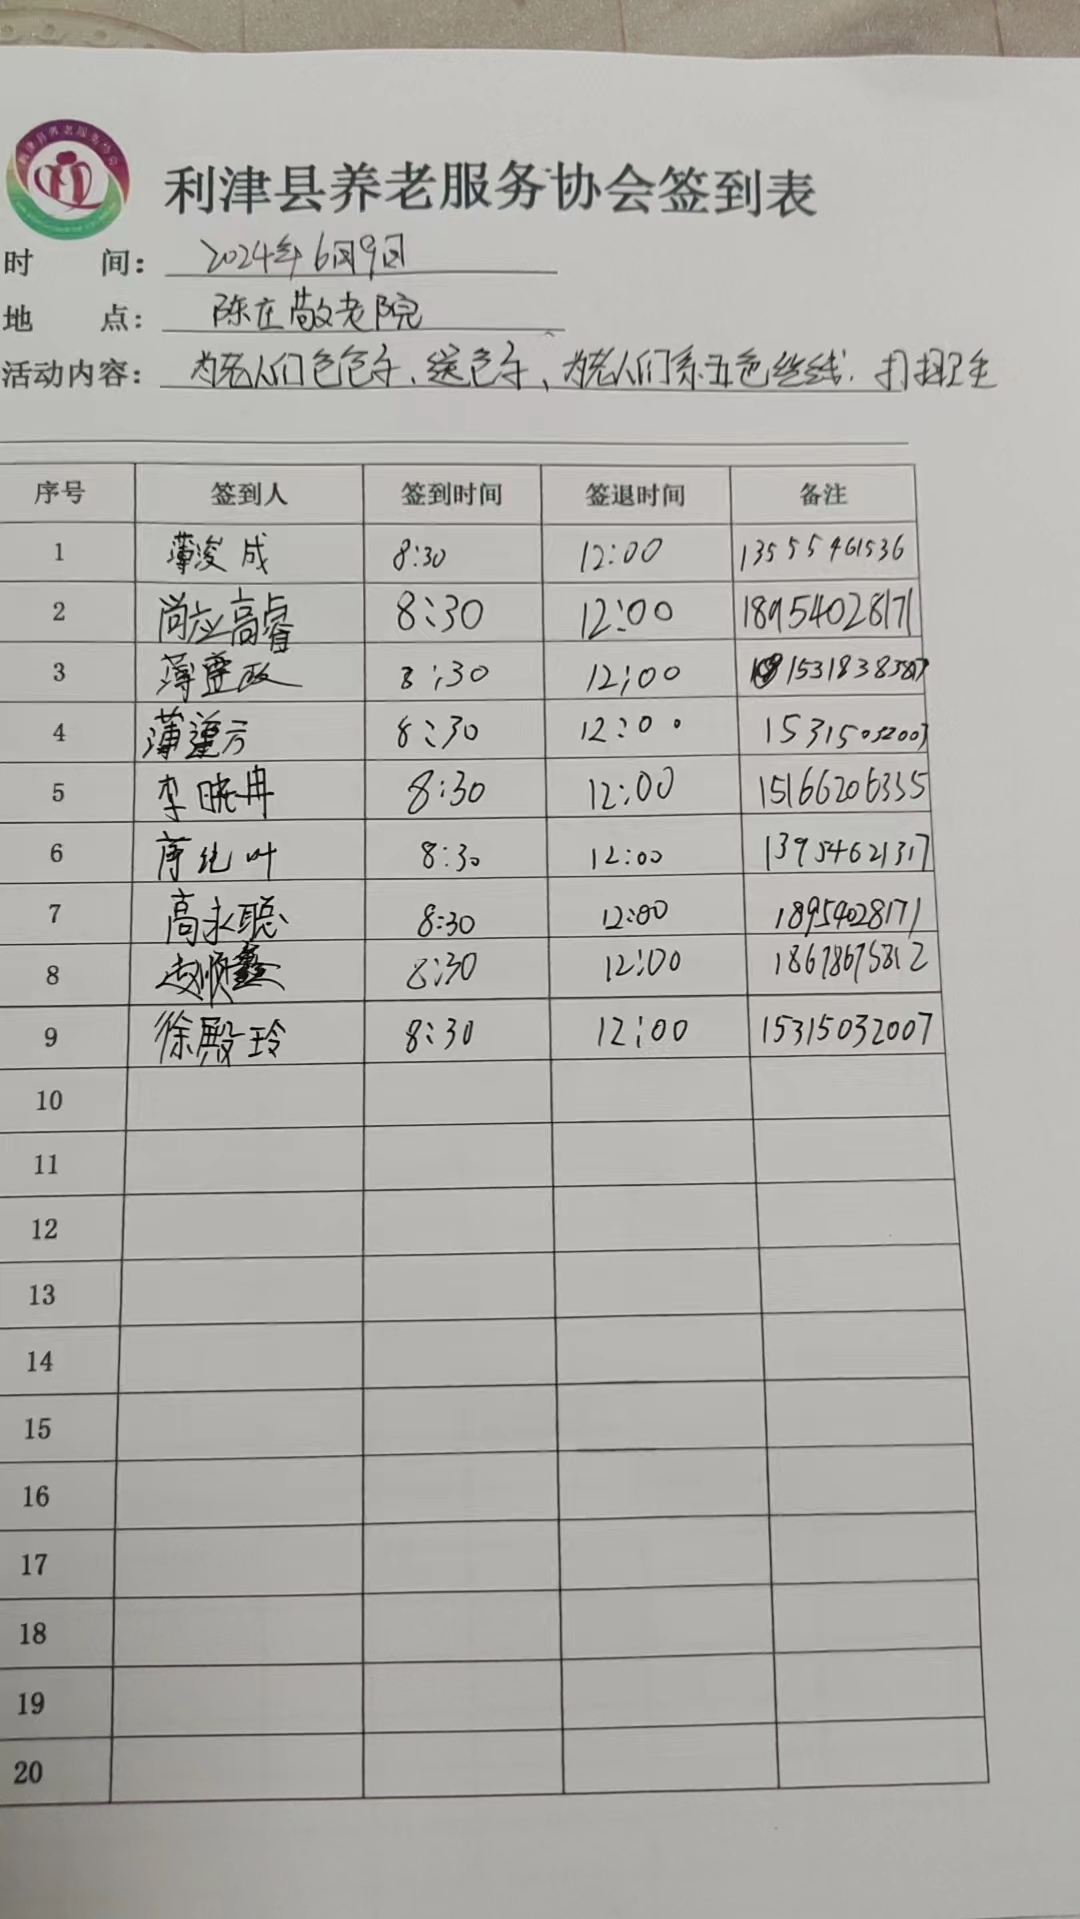 利津县养老服务协会
利津县养老服务协会签到表
时 间： 2024年6月9日
地 点： 陈庄敬老院
活动内容： 为老人们包包子、送包子、为老人们系五色丝线. 打扫卫生
序号 签到人 签到时间 签退时间 备注
1 薄浚成 8:30 12:00 13555461536
2 尚应高睿 8:30 12:00 18954028171
3 薄 政 8:30 12:00 15318383807
4 薄 8:30 12:00 15315032003
5 李晓冉 8:30 12:00 15166206335
6 叶 8:30 12:00 13954621317
7 高永聪 8:30 12:00 18954028171
8 赵顺鑫 8:30 12:00 18678675812
9 徐殿玲 8:30 12:00 15315032007
10
11
12
13
14
15
16
17
18
19
20